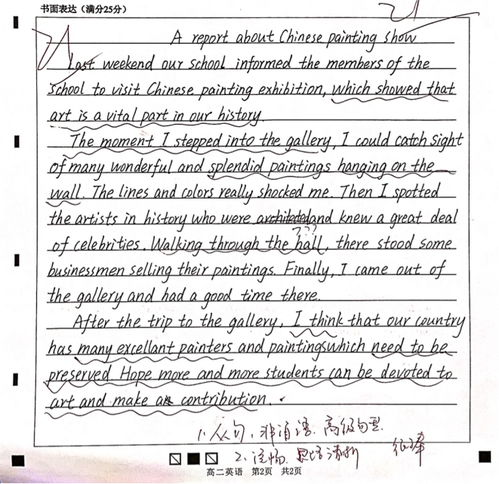 书面表达（满分25分）
21
A report about Chinese painting show
Last weekend our school informed the members of the
school to visit Chinese painting exhibition, which showed that
art is a vital part in our history.
The moment I stepped into the gallery, I could catch sight
of many wonderful and splendid paintings hanging on the
wall. The lines and colors really shocked me. Then I spotted
the artists in history who were and knew a great deal
of celebrities. Walking through the hall, there stood some
???
businessmen selling their paintings. Finally, I came out of
the gallery and had a good time there.
After the trip to the gallery, I think that our country
has many excellant painters and paintings which need to be
preserved. Hope more and more students can be devoted to
art and make a contribution.
1. 从句，非谓语，高级句型
2. 流畅，
高二英语 第2页 共2页